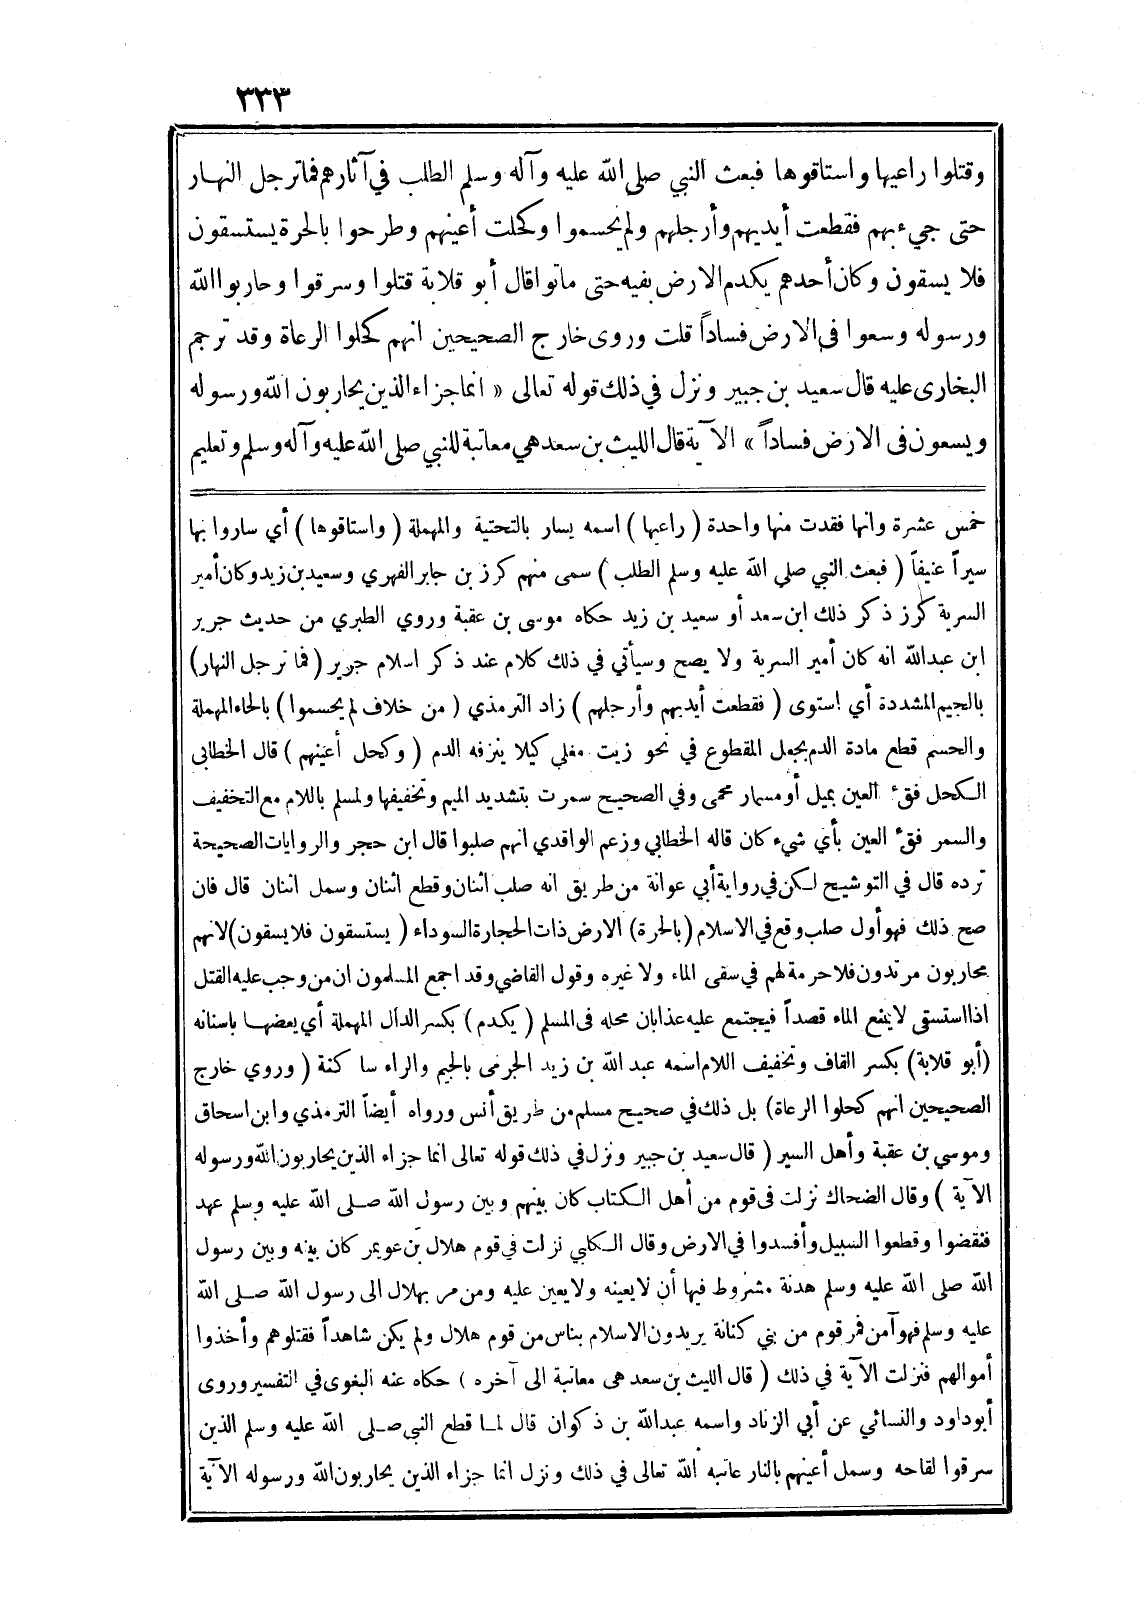 ٣٣٣
وقتلوا راعيها واستاقوها فبعث النبي صلى الله عليه وآله وسلم الطلب في آثارهم فما ترجل النهار
حتى جيء بهم فقطعت أيديهم وأرجلهم ولم يحسموا وكحلت أعينهم وطرحوا بالحرة يستسقون
فلا يسقون وكان أحدهم يكدم الارض بفيه حتى ماتوا قال أبو قلابة قتلوا وسرقوا وحاربوا الله
ورسوله وسعوا في الارض فساداً قلت وروى خارج الصحيحين انهم كحلوا الرعاة وقد ترجم
البخارى عليه قال سعيد بن جبير ونزل في ذلك قوله تعالى « انما جزاء الذين يحاربون الله ورسوله
ويسعون فى الارض فساداً » الآية قال الليث بن سعد هي معاتبة للنبي صلى الله عليه وآله وسلم وتعليم
خمس عشرة وانها فقدت منها واحدة ( راعيها ) اسمه يسار بالتحتية والمهملة ( واستاقوها ) أي ساروا بها
سيراً عنيفاً ( فبعث النبي صلى الله عليه وسلم الطلب ) سمى منهم كرز بن جابر الفهري وسعيد بن زيد وكان أمير
السرية كرز ذكر ذلك ابن سعد أو سعيد بن زيد حكاه موسى بن عقبة وروي الطبري من حديث جرير
ابن عبدالله انه كان أمير السرية ولا يصح وسيأتي في ذلك كلام عند ذكر اسلام جرير ( فما ترجل النهار)
بالجيم المشددة أي استوى ( فقطعت أيديهم وأرجلهم ) زاد الترمذي ( من خلاف لم يحسموا ) بالحاء المهملة
والحسم قطع مادة الدم بجعل المقطوع في نحو زيت مغلي كيلا ينزفه الدم ( وكحل أعينهم ) قال الخطابى
الكحل فقء العين بميل أو مسمار محمى وفي الصحيح سمرت بتشديد الميم وتخفيفها ولمسلم باللام مع التخفيف
والسمر فقء العين بأي شيء كان قاله الخطابي وزعم الواقدي انهم صلبوا قال ابن حجر والروايات الصحيحة
ترده قال في التوشيح لكن في رواية أبي عوانة من طريق انه صلب اثنان وقطع اثنان وسمل اثنان قال فان
صح ذلك فهو أول صلب وقع في الاسلام (بالحرة) الارض ذات الحجارة السوداء ( يستسقون فلا يسقون) لانهم
محاربون مرتدون فلا حرمة لهم في سقى الماء ولا غيره وقول القاضي وقد اجمع المسلمون ان من وجب عليه القتل
اذا استسقى لا يمنع الماء قصداً فيجتمع عليه عذابان محله فى المسلم ( يكدم ) بكسر الدال المهملة أي يعضها باسنانه
(أبو قلابة) بكسر القاف وتخفيف اللام اسمه عبد الله بن زيد الجرمى بالجيم والراء ساكنة ( وروي خارج
الصحيحين انهم كحلوا الرعاة) بل ذلك في صحيح مسلم من طريق أنس ورواه أيضاً الترمذي وابن اسحاق
وموسي بن عقبة وأهل السير ( قال سعيد بن جبير ونزل في ذلك قوله تعالى انما جزاء الذين يحاربون الله ورسوله
الآية ) وقال الضحاك نزلت فى قوم من أهل الكتاب كان بينهم وبين رسول الله صلى الله عليه وسلم عهد
فنقضوا وقطعوا السبيل وأفسدوا في الارض وقال الكلبي نزلت في قوم هلال بن عويمر كان بينه وبين رسول
الله صلى الله عليه وسلم هدنة مشروط فيها أن لا يعينه ولا يعين عليه ومن مر بهلال الى رسول الله صلى الله
عليه وسلم فهو آمن فمر قوم من بني كنانة يريدون الاسلام بناس من قوم هلال ولم يكن شاهداً فقتلوهم وأخذوا
أموالهم فنزلت الآية في ذلك ( قال الليث بن سعد هى معاتبة الى آخره ) حكاه عنه البغوى في التفسير وروى
أبو داود والنسائي عن أبي الزناد واسمه عبدالله بن ذكوان قال لما قطع النبي صلى الله عليه وسلم الذين
سرقوا لقاحه وسمل أعينهم بالنار عاتبه الله تعالى في ذلك ونزل انما جزاء الذين يحاربون الله ورسوله الآية